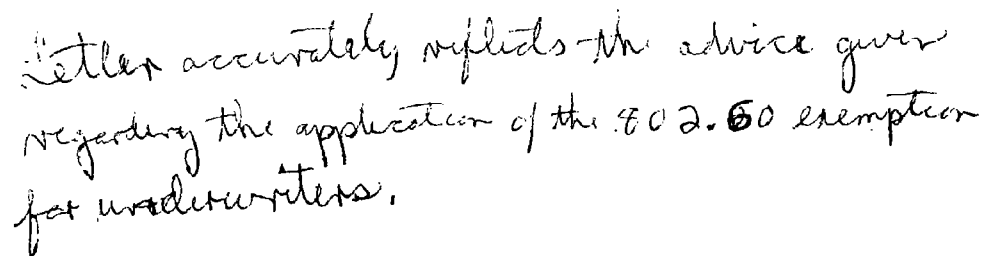 Letter accurately reflects the advice given
regarding the application of the 802.60 exemption
for underwriters.